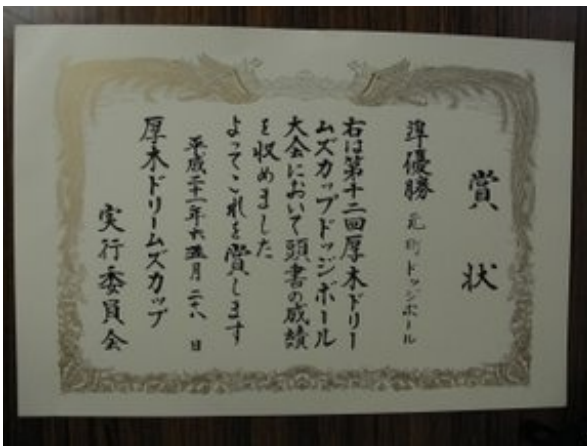 賞状
準優勝
ドッジボール
右は第十二回厚木ドリー
ムズカップドッジボール
大会において頭書の成績
を収めました
よってこれを賞します
平成二十一年六月二十八日
厚木ドリームズカップ
実行委員会